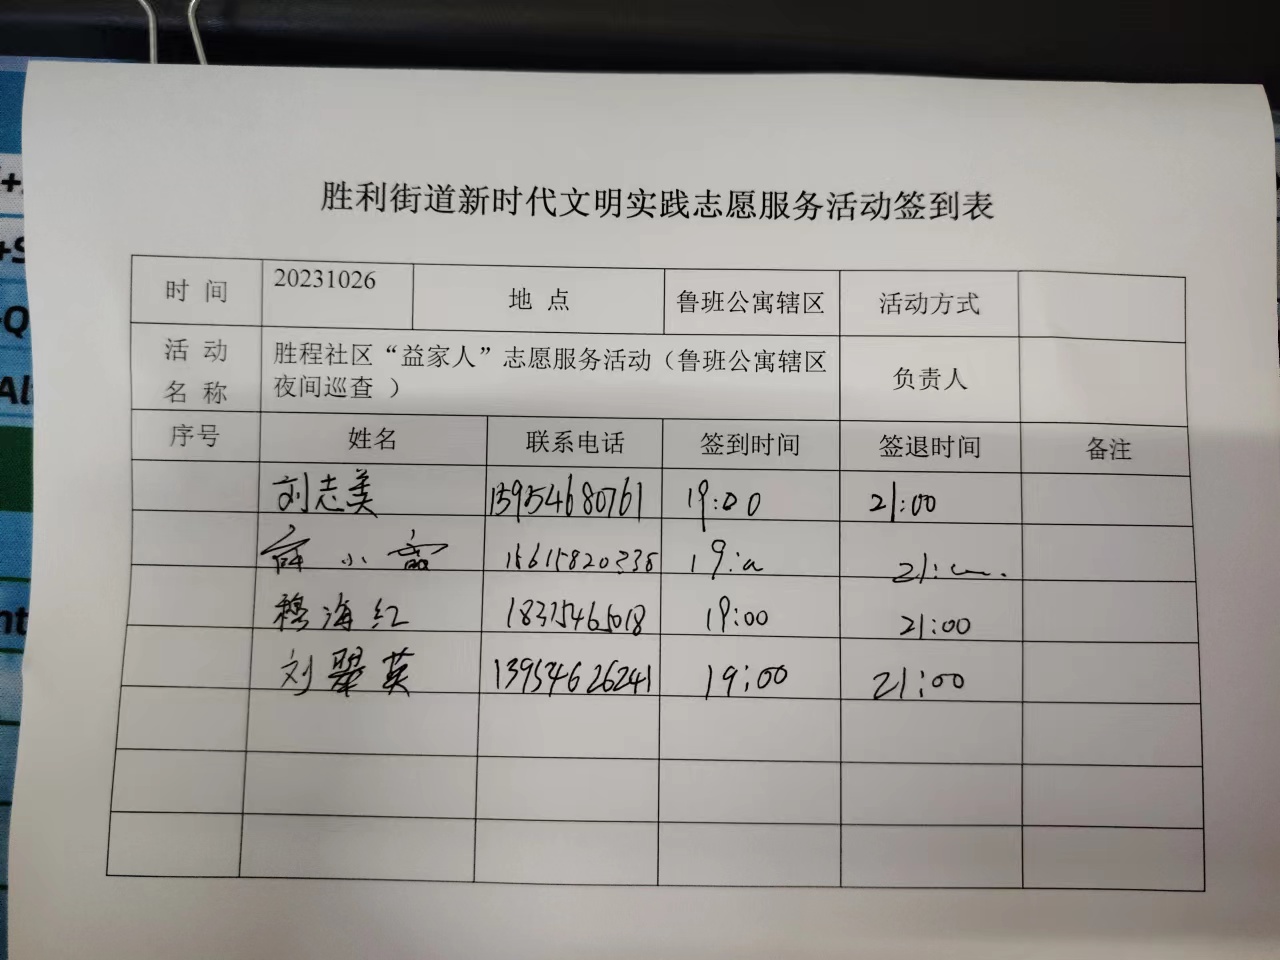 胜利街道新时代文明实践志愿服务活动签到表
时 间 20231026 地 点 鲁班公寓辖区 活动方式
活 动 名 称 胜程社区“益家人”志愿服务活动（鲁班公寓辖区
夜间巡查 ） 负责人
序号 姓名 联系电话 签到时间 签退时间 备注
刘志美 15954680761 19:00 21:00
小 15615820338 19: 21:
穆海红 18315465018 19:00 21:00
刘翠英 13954626241 19:00 21:00